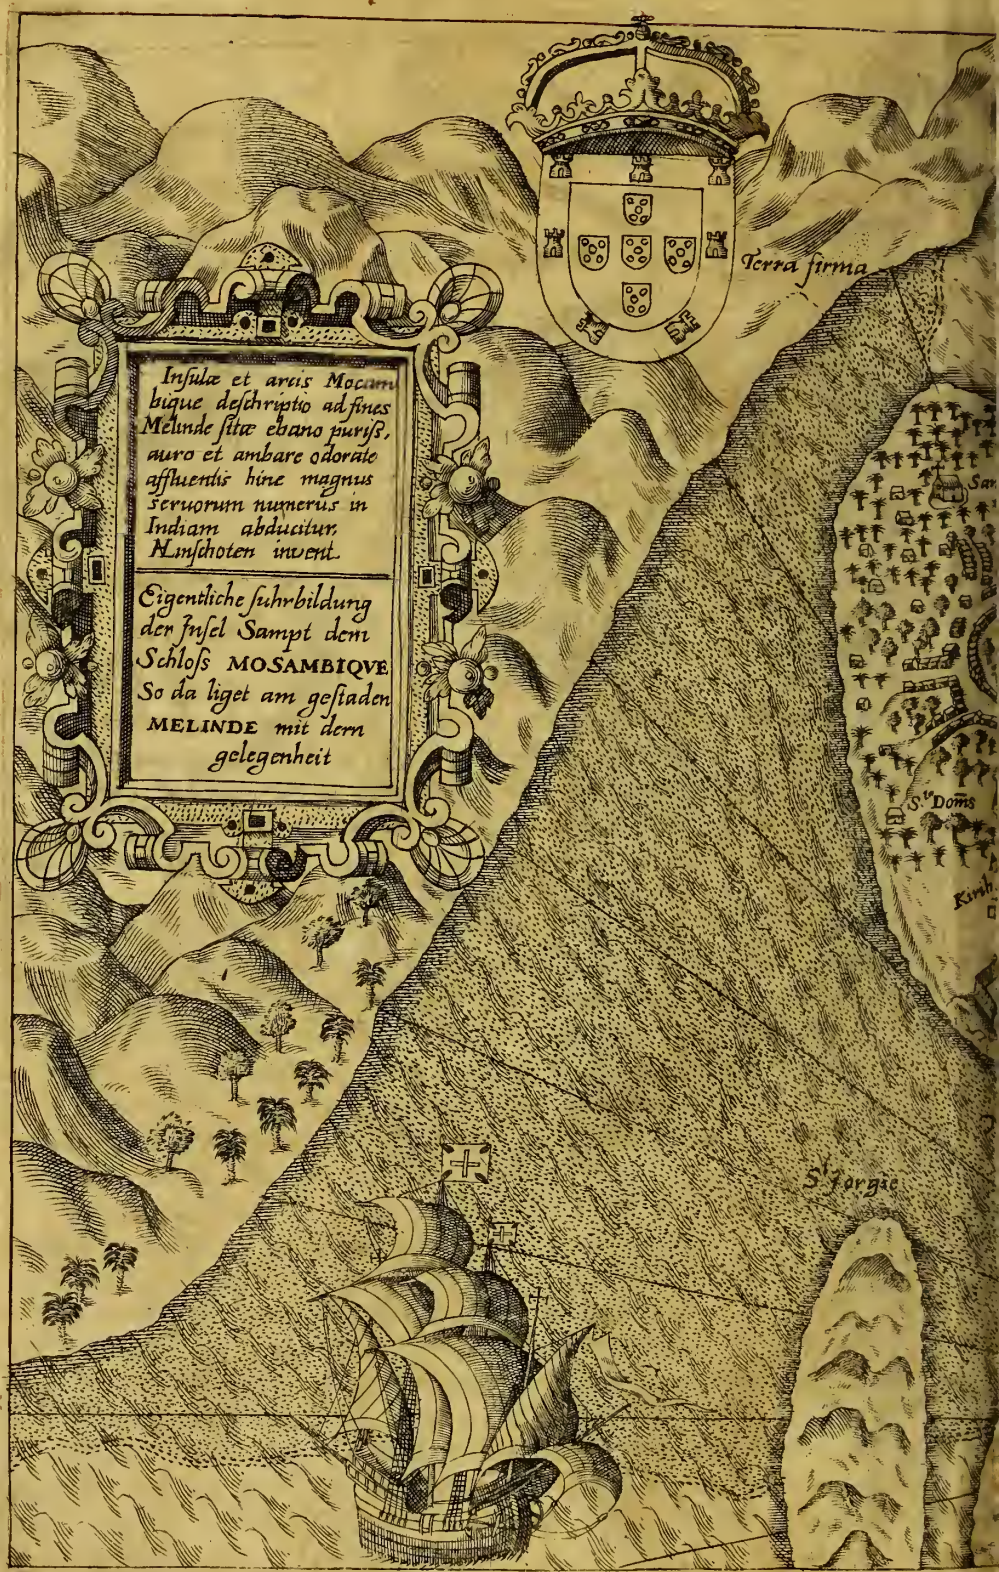 Terra firma
Inſulæ et arcis Mocam
bique deſchriptio ad fines
Melinde ſitæ ebano puriſs,
auro et ambare odorato
affluentis hinc magnus
seruorum numerus in
Indiam abducitur.
Linſchoten invent.
Eigentliche fuhrbildung
der Jnſel Sampt dem
Schloſs MOSAMBIQVE
So da liget am geſtaden
MELINDE mit dern
gelegenheit
San
S.to Dom̄s
Kirch
St Jorgie